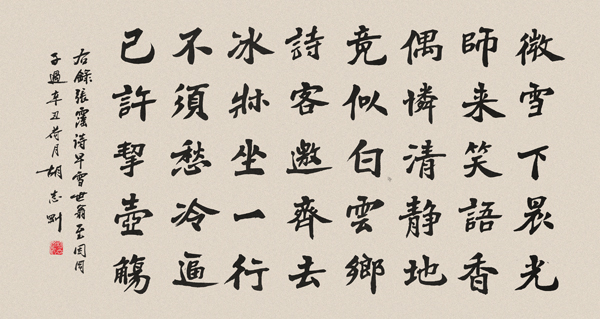 微雪下晨光
師来笑語香
偶憐清静地
竟似白雲鄉
詩客邀齊去
冰牀坐一行
不須愁冷逼
已許挈壺觴
右錄張霔詩早雪世翁至同周
子過辛丑荷月胡志剛